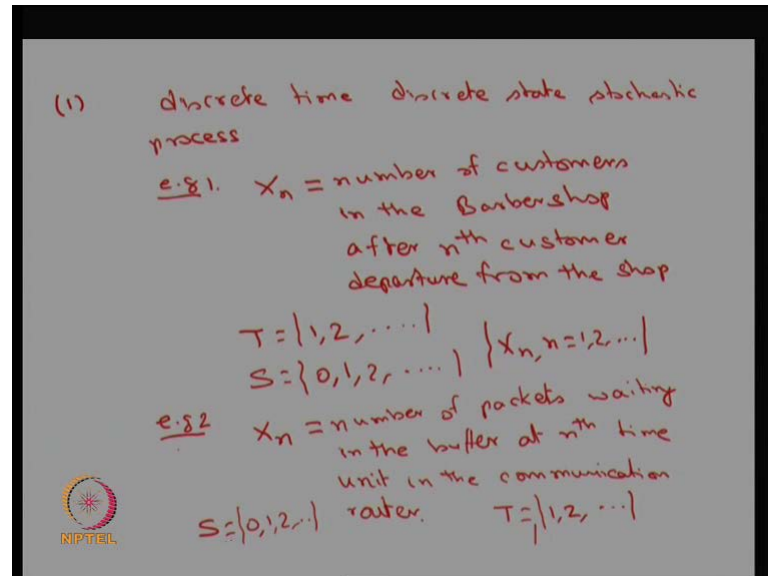 (1) discrete time discrete state stochastic
process
e.g 1. Xn = number of customers
in the Barbershop
after nth customer
departure from the shop
T = {1, 2, ....}
S = {0, 1, 2, ....} {Xn, n = 1, 2, ...}
e.g 2 Xn = number of packets waiting
in the buffer at nth time
unit in the communication
router.
S = {0, 1, 2, ..} T = {1, 2, ...}
NPTEL